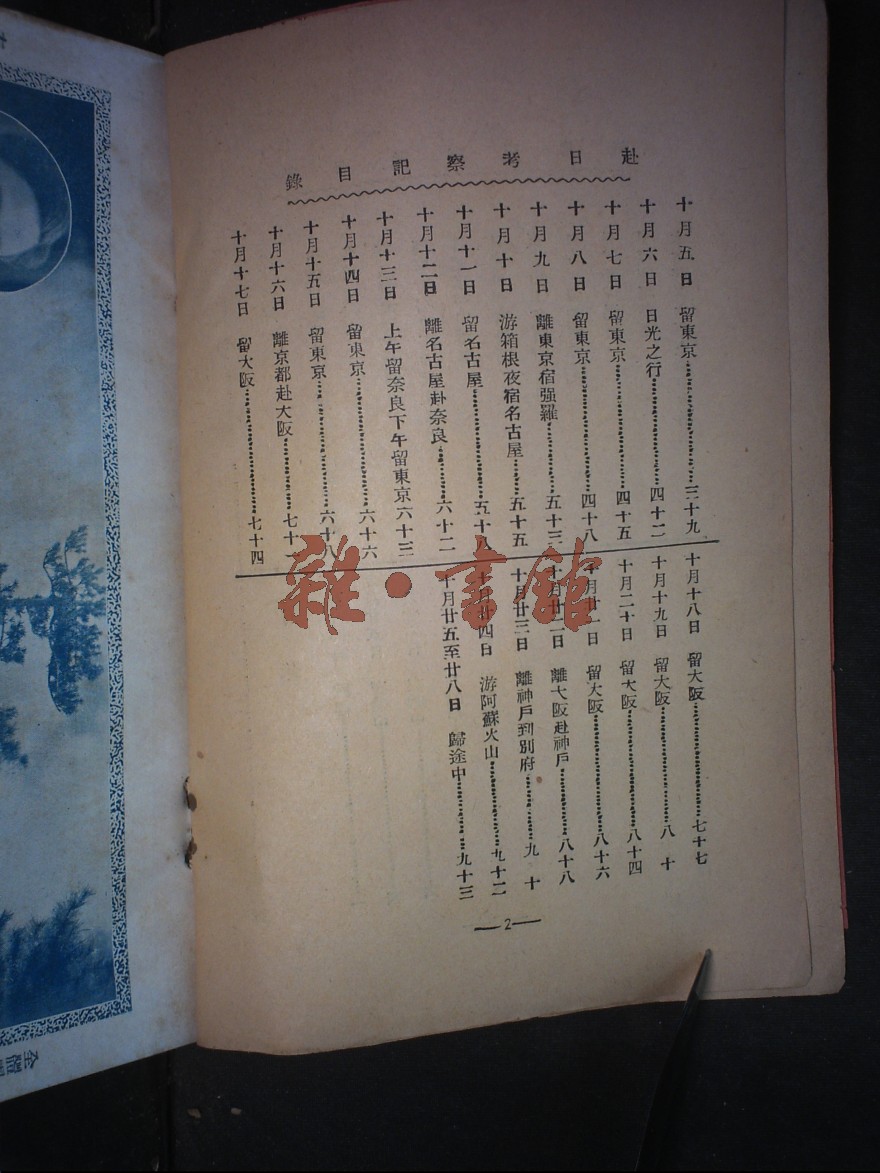 赴日考察記目錄
十月五日 留東京……三十九
十月六日 日光之行……四十二
十月七日 留東京……四十五
十月八日 留東京……四十八
十月九日 離東京宿强羅……五十三
十月十日 游箱根夜宿名古屋……五十五
十月十一日 留名古屋……五十八
十月十二日 離名古屋赴奈良……六十二
十月十三日 上午留奈良下午留東京六十三
十月十四日 留東京……六十六
十月十五日 留東京……六十八
十月十六日 離京都赴大阪……七十
十月十七日 留大阪……七十四
十月十八日 留大阪……七十七
十月十九日 留大阪……八十
十月二十日 留大阪……八十四
十月廿一日 留大阪……八十六
十月廿二日 離大阪赴神戶……八十八
十月廿三日 離神戶到別府……九十
十月廿四日 游阿蘇火山……九十二
十月廿五至廿八日 歸途中……九十三
—2—
雜·書館
全體